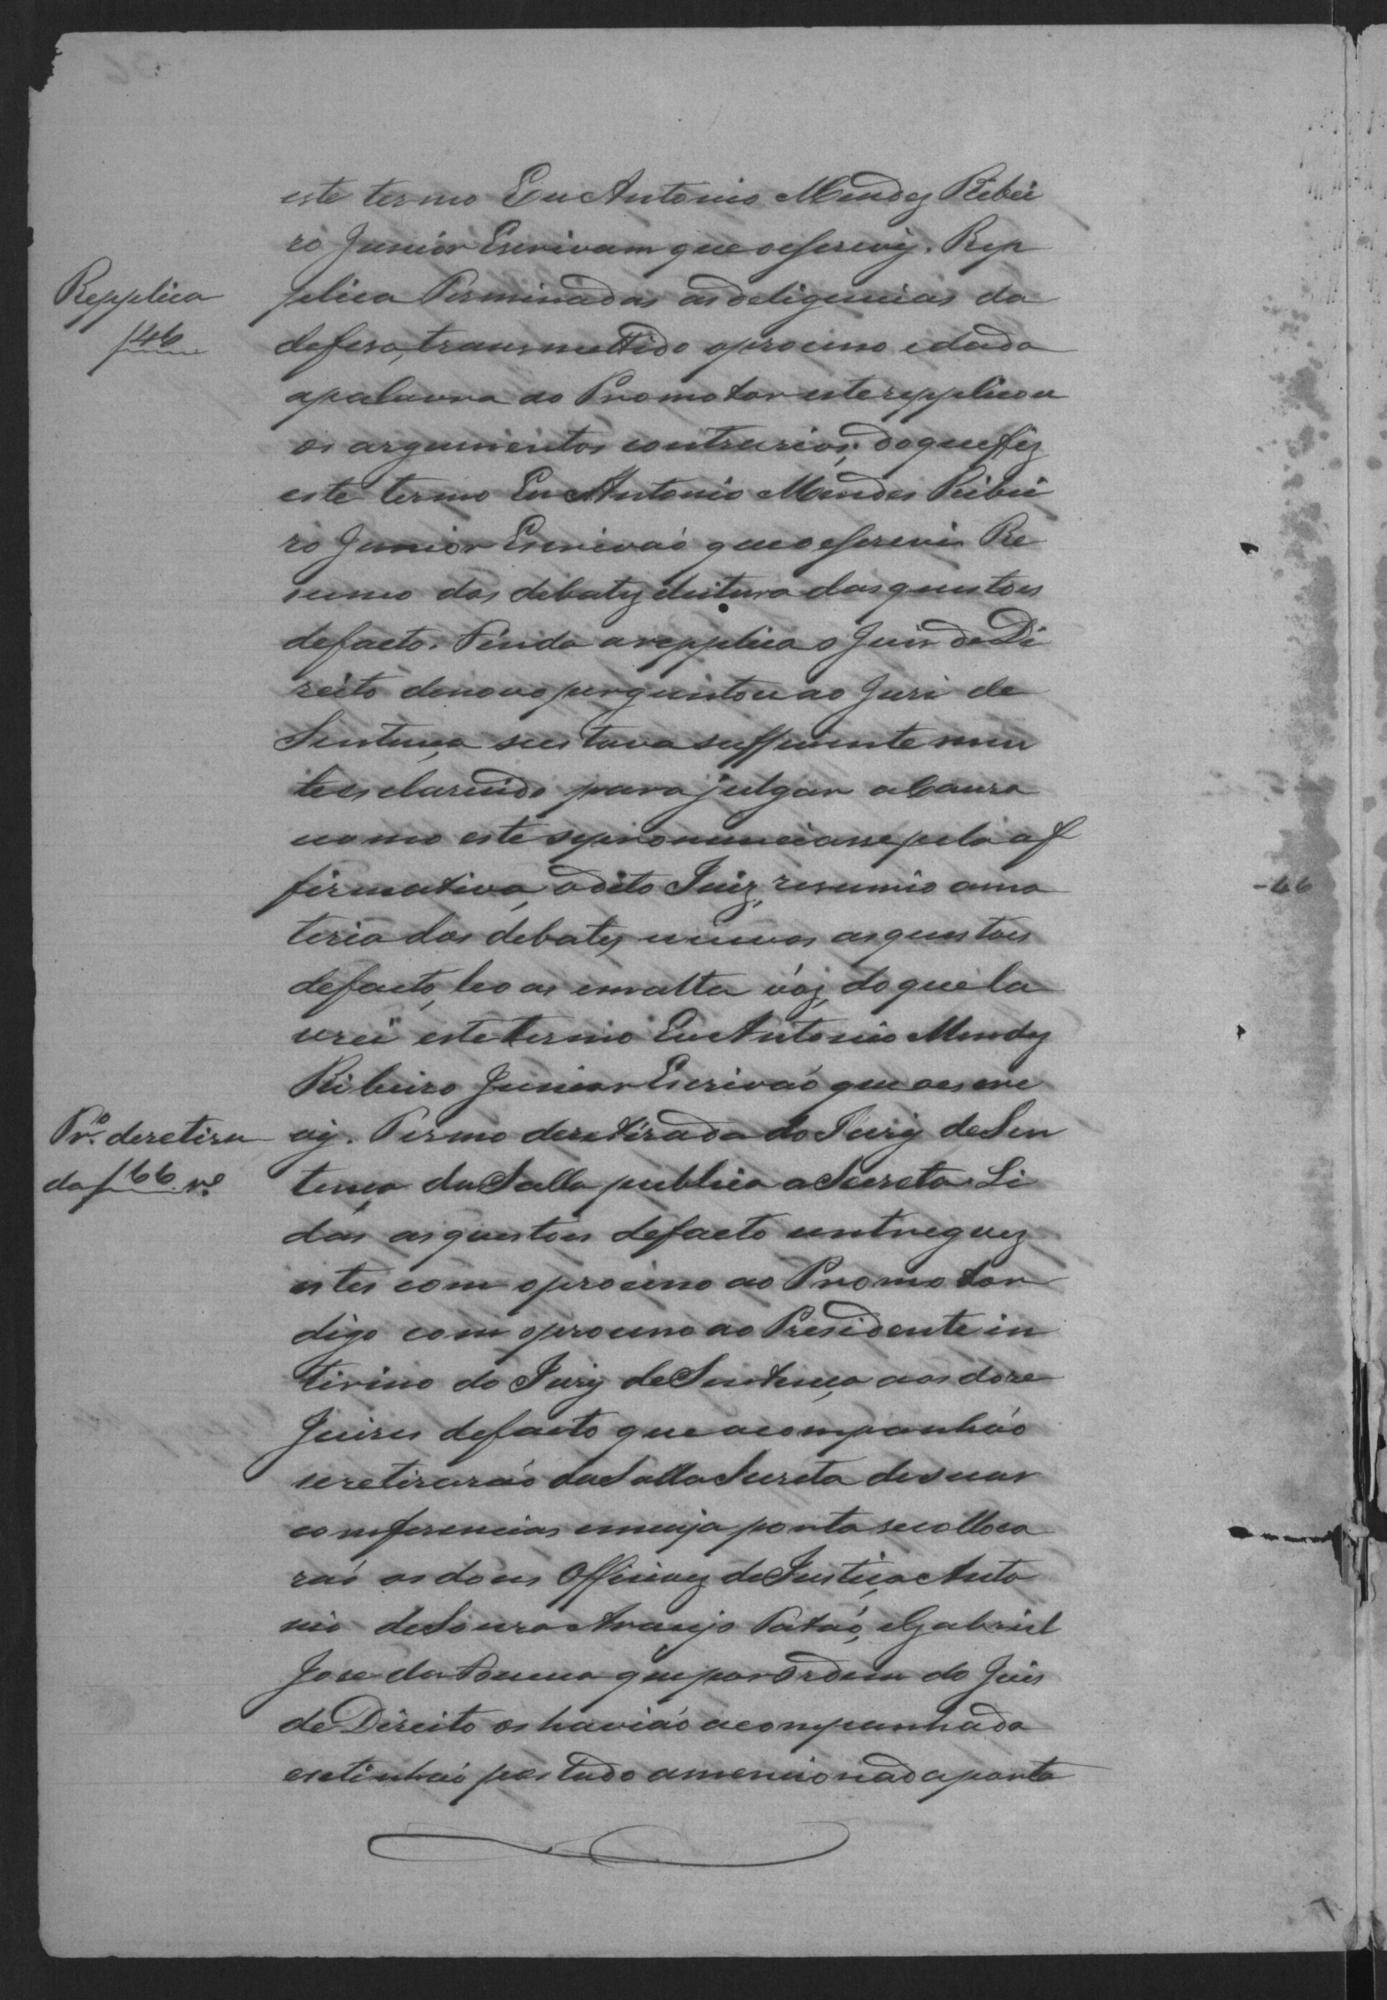 este termo Eu Antonio Mendes Ribei
ro Junior Escrivam que o escrevy. Rep
Repplica
plica Terminadas as deligencias da
f 46
defesa, transmettido o processo e dada
a palavra ao Promotor este repplicou
os argumentos contrarios; do que fiz
este termo Eu Antonio Mendes Ribei
ro Junior Escrivaó que o escrevi Re
sumo dos debates e leitura das questões
de facto. Finda a repplica o Juis de Di
reito de novo perguntou ao Juri de
Sentença se estava sufficientemen
te esclarecido para julgar a Causa
e como este se pronunciasse pela af
firmativa, o dito Juiz, resumio a ma
teria dos debates, as questões
de facto, leo as em alta vóz, do que la
vrei este termo Eu Antonio Mendes
Ribeiro Junior Escrivaó que o escre
Tr.º de retira
vy. Termo de retirada do Jury de Sen
da f 66 vº
tença da Salla publica a Secreta. Li
das as questões de facto entregues
estes com o processo ao Promotor
digo com o processo ao Presidente in
tirino do Jury de Sentença aos doze
Juizes de facto que acompanhaó
se retiraraó da Salla Secreta de suas
comferencias em cuja porta se colloca
raó os dous Officiaes de Justiça Anto
nio de Souza Araujo Pataó, e Gabriel
Jose da que por Ordem do Juis
de Direito os haviaó acompanhado
e se tinhaó postado a mencionada porta